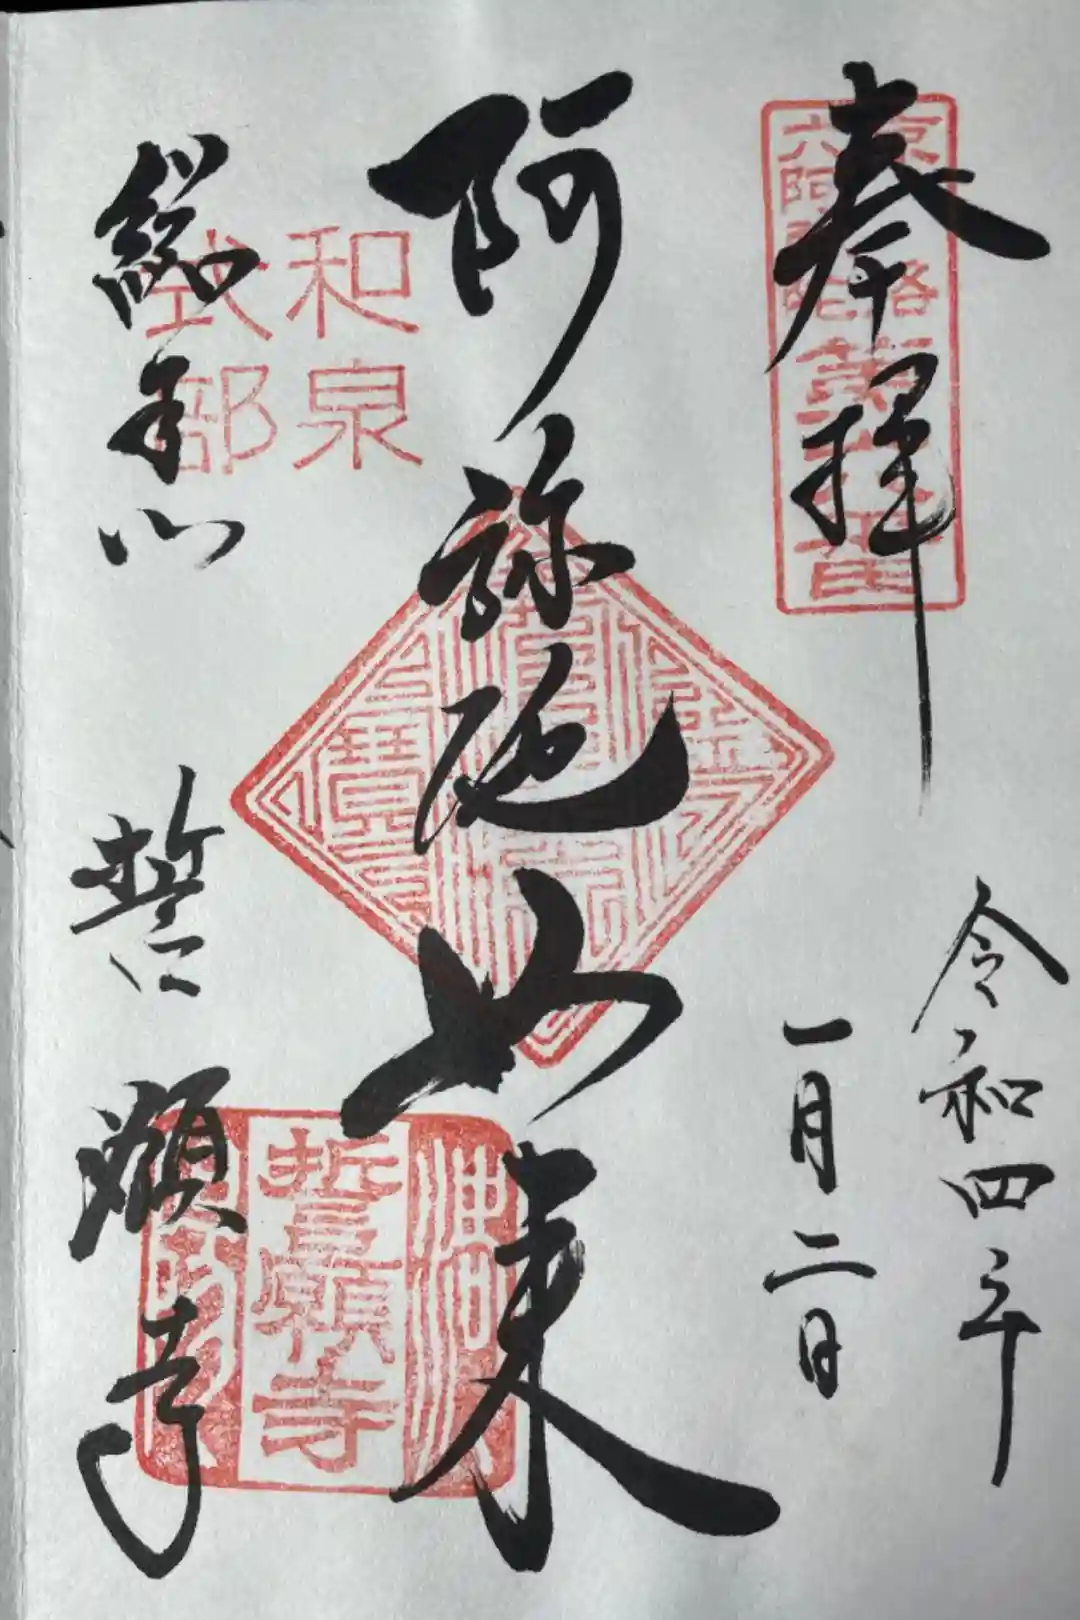 奉拝
令和四年
一月二日
阿弥陀如来
総本山
誓願寺
和泉
式部
誓願寺